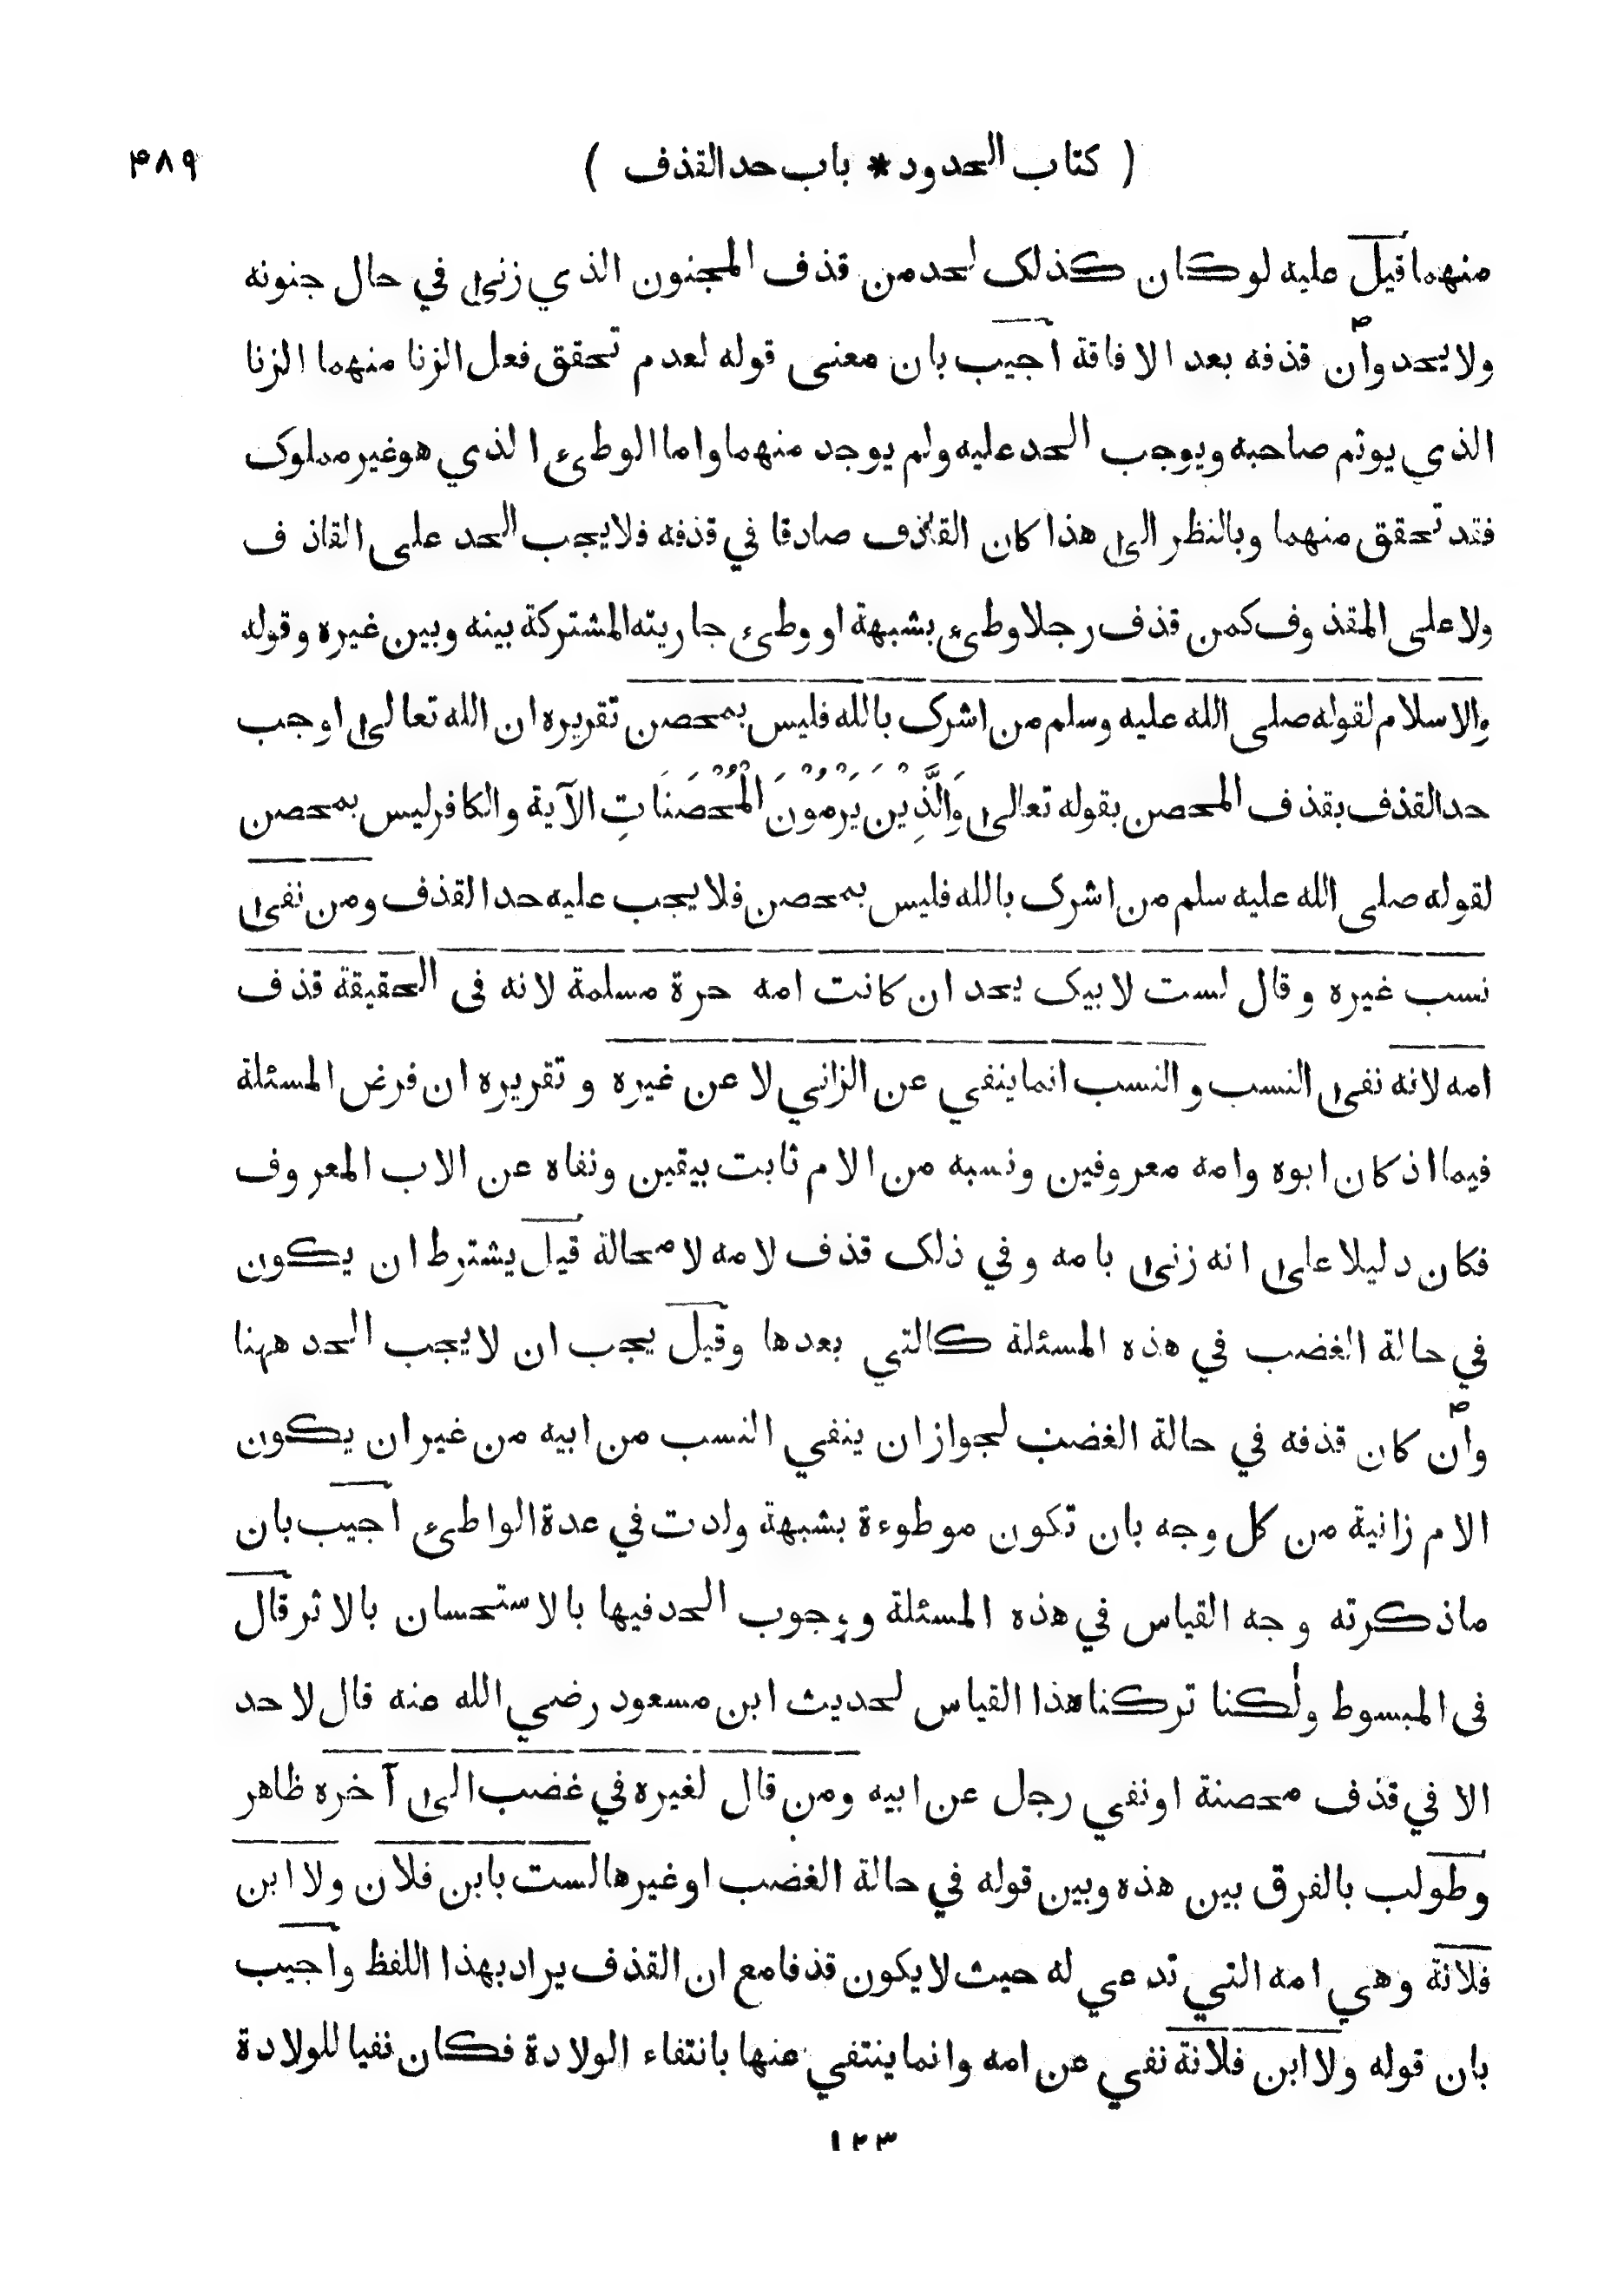 ( كتاب الحدود * باب حد القذف ) ۴۸۹
منهما قيل عليه لو كان كذلك لحد من قذف المجنون الذي زنى في حال جنونه
ولا يحد وان قذفه بعد الافاقة اجيب بان معنى قوله لعدم تحقق فعل الزنا منهما الزنا
الذي يوثم صاحبه ويوجب الحد عليه ولم يوجد منهما واما الوطىء الذي هو غير مملوك
فقد تحقق منهما وبالنظر الى هذا كان القاذف صادقا في قذفه فلا يجب الحد على القاذف
ولا على المقذوف كمن قذف رجلا وطىء بشبهة او وطىء جاريته المشتركة بينه وبين غيره وقوله
والاسلام لقوله صلى الله عليه وسلم من اشرك بالله فليس بمحصن تقريره ان الله تعالى اوجب
حد القذف بقذف المحصن بقوله تعالى وَالَّذِيْنَ يَرْمُوْنَ الْمُحْصَنَاتِ الآية والكافر ليس بمحصن
لقوله صلى الله عليه سلم من اشرك بالله فليس بمحصن فلا يجب عليه حد القذف ومن نفى
نسب غيره وقال لست لابيك يحد ان كانت امه حرة مسلمة لانه فى الحقيقة قذف
امه لانه نفى النسب والنسب انما ينفي عن الزاني لا عن غيره وتقريره ان فرض المسئلة
فيما اذ كان ابوه وامه معروفين ونسبه من الام ثابت بيقين ونفاه عن الاب المعروف
فكان دليلا على انه زنى بامه وفي ذلك قذف لامه لا محالة قيل يشترط ان يكون
في حالة الغضب في هذه المسئلة كالتي بعدها وقيل يجب ان لا يجب الحد ههنا
وان كان قذفه في حالة الغضب لجواز ان ينفي النسب من ابيه من غير ان يكون
الام زانية من كل وجه بان تكون موطوءة بشبهة ولدت في عدة الواطىء اجيب بان
ماذكرته وجه القياس في هذه المسئلة ووجوب الحد فيها بالاستحسان بالاثر قال
فى المبسوط ولكنا تركنا هذا القياس لحديث ابن مسعود رضي الله عنه قال لا حد
الا في قذف محصنة او نفي رجل عن ابيه ومن قال لغيره في غضب الى آخره ظاهر
وطولب بالفرق بين هذه وبين قوله في حالة الغضب او غيرها لست بابن فلان ولا ابن
فلانة وهي امه التي تدعي له حيث لا يكون قذفا مع ان القذف يراد بهذا اللفظ واجيب
بان قوله ولا ابن فلانة نفي عن امه وانما ينتفي عنها بانتفاء الولادة فكان نفيا للولادة
۱۲۳